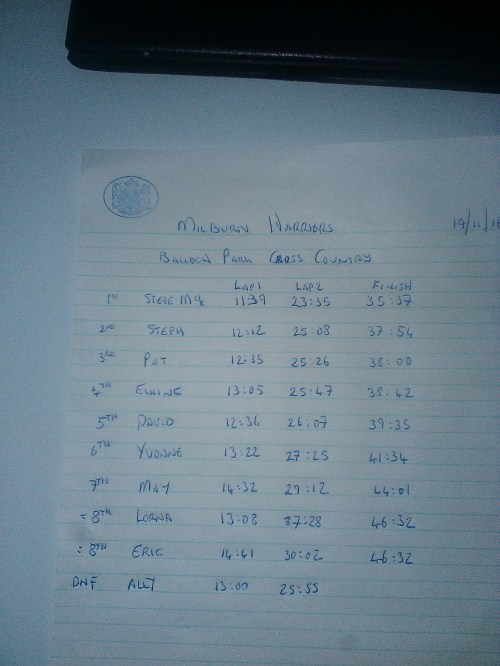 MILBURN HARRIERS 19/11/16
BALLOCH PARK CROSS COUNTRY
LAP1 LAP2 FINISH
1ST STEVE McK 11:39 23:35 35:37
2ND STEPH 12:12 25:08 37:54
3RD PAT 12:35 25:26 38:00
4TH ELAINE 13:05 25:47 38:42
5TH DAVID 12:36 26:07 39:35
6TH YVONNE 13:22 27:25 41:34
7TH MAY 14:32 29:12 44:01
=8TH LORNA 13:08 27:28 46:32
=8TH ERIC 14:41 30:02 46:32
DNF ALLY 13:00 25:55